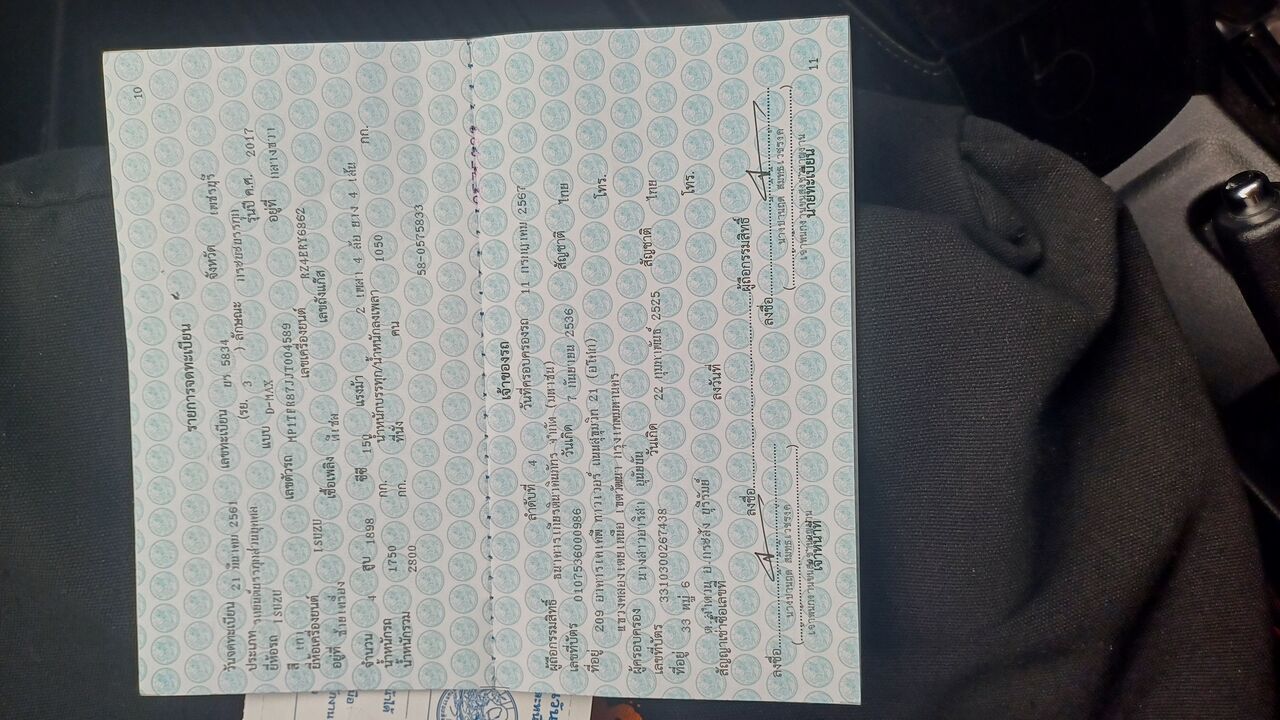 10
รายการจดทะเบียน
วันจดทะเบียน 21 มีนาคม 2561 เลขทะเบียน ยร 5834 จังหวัด เพชรบุรี
ประเภท รถยนต์บรรทุกส่วนบุคคล (รย. 3 ) ลักษณะ กระบะบรรทุก
ยี่ห้อรถ ISUZU แบบ D-MAX รุ่นปี ค.ศ. 2017
สี เทา เลขตัวรถ MP1TFR87JJT004589 อยู่ที่ กลางขวา
ยี่ห้อเครื่องยนต์ ISUZU เลขเครื่องยนต์ RZ4ERY6862
อยู่ที่ ซ้ายเครื่อง เชื้อเพลิง ดีเซล เลขถังแก๊ส
จำนวน 4 สูบ 1898 ซีซี 150 แรงม้า 2 เพลา 4 ล้อ ยาง 4 เส้น
น้ำหนักรถ 1750 กก. น้ำหนักบรรทุก/น้ำหนักลงเพลา 1050 กก.
น้ำหนักรวม 2800 กก. ที่นั่ง คน
58-0575833
เจ้าของรถ
ลำดับที่ 4 วันที่ครอบครองรถ 11 กรกฎาคม 2567
ผู้ถือกรรมสิทธิ์ ธนาคารเกียรตินาคินภัทร จำกัด (มหาชน)
เลขที่บัตร 0107536000986 วันเกิด 7 กันยายน 2536 สัญชาติ ไทย
ที่อยู่ 209 อาคารเคเคพี ทาวเวอร์ ถนนสุขุมวิท 21 (อโศก) โทร.
แขวงคลองเตยเหนือ เขตวัฒนา กรุงเทพมหานคร
ผู้ครอบครอง นางสาวอาริสา
เลขที่บัตร 3310300267438 วันเกิด 22 กุมภาพันธ์ 2525 สัญชาติ ไทย
ที่อยู่ 33 หมู่ 6 โทร.
ต.ลำดวน อ.กระสัง บุรีรัมย์
สัญญาเช่าซื้อเลขที่ ลงวันที่
ลงชื่อ ผู้ถือกรรมสิทธิ์
ลงชื่อ ลงชื่อ
เจ้าหน้าที่ นายทะเบียน
11